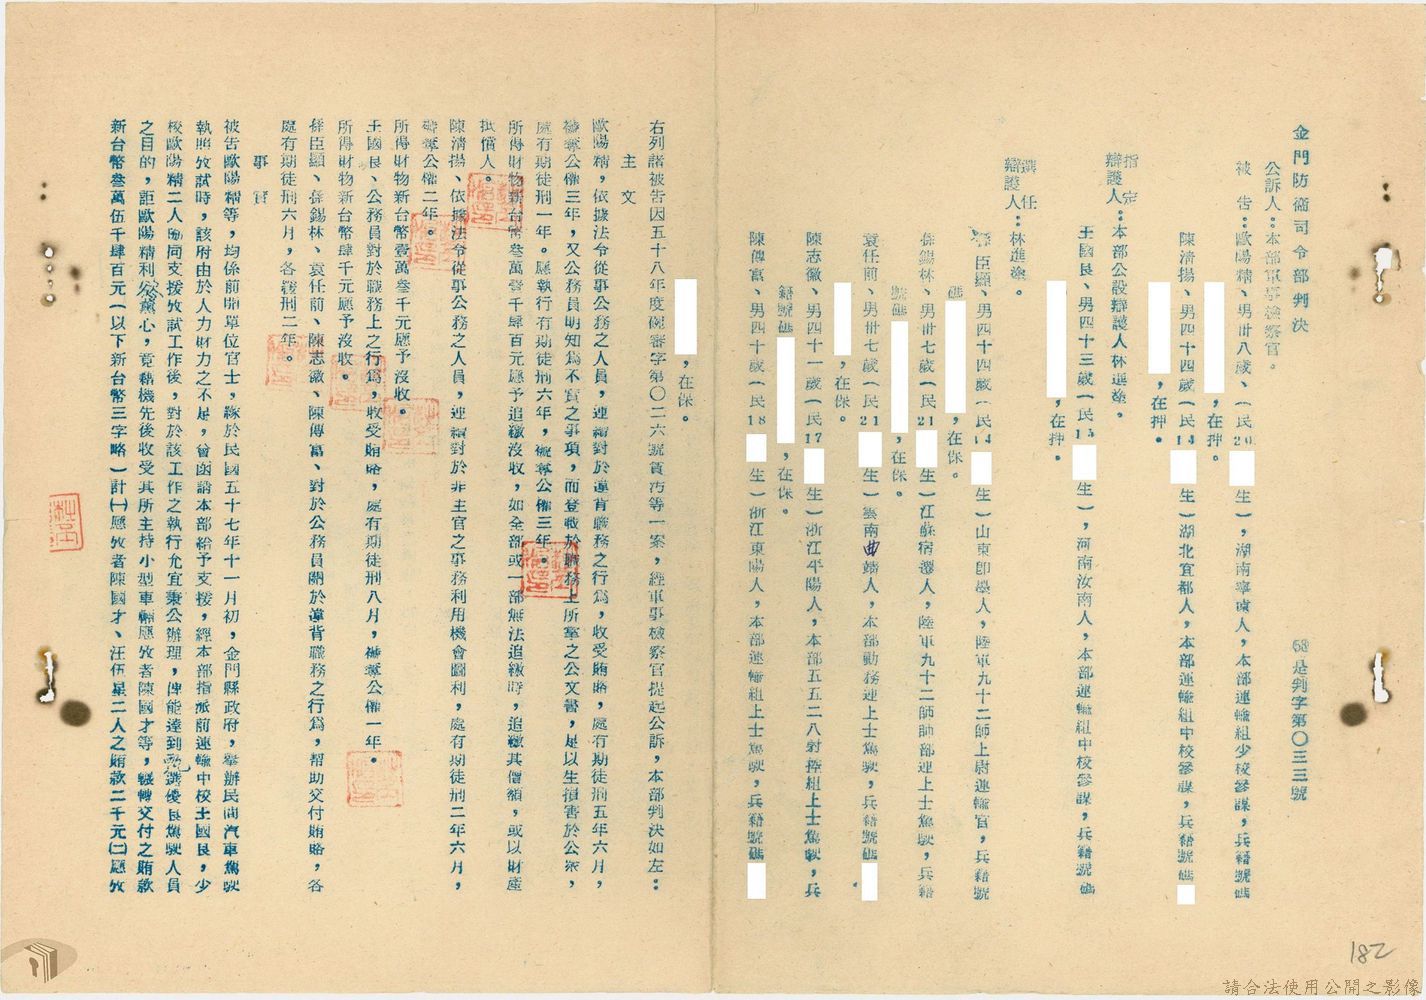 金門防衛司令部判決
58是判字第〇三三號
公訴人：本部軍事檢察官。
被告：歐陽精、男卅八歲、（民20 生），湖南寧遠人，本部運輸組少校參謀，兵籍號碼
，在押。
陳清揚、男四十四歲（民14 生）湖北宜都人，本部運輸組中校參謀，兵籍號碼
，在押。
王國良、男四十三歲（民15 生），河南汝南人，本部運輸組中校參謀，兵籍號碼
，在押。
指定辯護人：本部公設辯護人林進塗。
孫臣顯、男四十四歲（民14 生）山東即墨人，陸軍九十二師上尉運輸官，兵籍號
碼 ，在保。
選任辯護人：林進塗。
孫錫林、男卅七歲（民21 生）江蘇宿遷人，陸軍九十二師師部連上士駕駛，兵籍
號碼 ，在保。
袁任前、男卅七歲（民21 生）雲南曲靖人，本部勤務連上士駕駛，兵籍號碼
，在保。
陳志徽、男四十一歲（民17 生）浙江平陽人，本部五五二八射控組上士駕駛，兵
籍號碼 ，在保。
陳傳富、男四十歲（民18 生）浙江東陽人，本部運輸組上士駕駛，兵籍號碼
，在保。
右列諸被告因五十八年度礮審字第〇二六號貪污等一案，經軍事檢察官提起公訴，本部判決如左：
主文
歐陽精，依據法令從事公務之人員，連續對於違背職務之行為，收受賄賂，處有期徒刑五年六月，
褫奪公權三年，又公務員明知為不實之事項，而登載於職務上所掌之公文書，足以生損害於公眾，
處有期徒刑一年。應執行有期徒刑六年，褫奪公權三年。
所得財物新台幣叁萬壹千肆百元應予追繳沒收，如全部或一部無法追繳時，追繳其價額，或以財產
抵償人。
陳清揚、依據法令從事公務之人員，連續對於非主官之事務利用機會圖利，處有期徒刑二年六月，
褫奪公權二年。
所得財物新台幣壹萬叁千元應予沒收。
王國良、公務員對於職務上之行為，收受賄賂，處有期徒刑八月，褫奪公權一年。
所得財物新台幣肆千元應予沒收。
孫臣顯、孫錫林、袁任前、陳志徽、陳傳富、對於公務員關於違背職務之行為，幫助交付賄賂，各
處有期徒刑六月，各緩刑二年。
事實
被告歐陽精等，均係前開單位官士，緣於民國五十七年十一月初，金門縣政府，舉辦民間汽車駕駛
執照攷試時，該府由於人力財力之不足，曾函請本部給予支援，經本部指派前運輸中校王國良，少
校歐陽精二人協同支援攷試工作後，對於該工作之執行允宜秉公辦理，俾能達到甄選優良駕駛人員
之目的，詎歐陽精利慾薰心，竟藉機先後收受其所主持小型車輛應攷者陳國才等，輾轉交付之賄款
新台幣叁萬伍千肆百元（以下新台幣三字略）計㈠應攷者陳國才、汪伍星二人之賄款二千元㈡應攷
182
請合法使用公開之影像